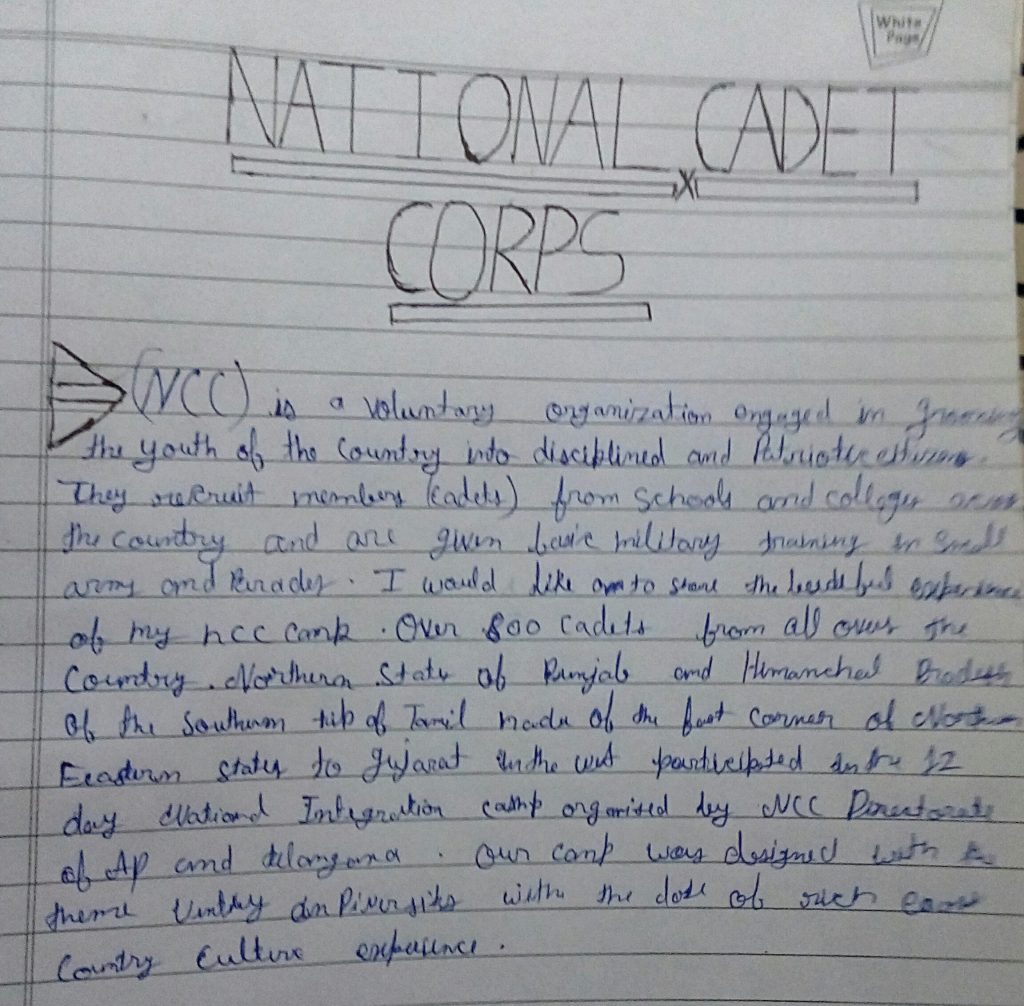 White
Page
NATIONAL CADET
CORPS
(NCC) is a voluntary organization engaged in
the youth of the country into disciblined and
They recruit members (cadets) from schools and colleges
the country and are given basic military training in small
army and Parades. I would like to share the
of my ncc camp. Over 800 cadets from all over the
Country. Northern State of Punjab and Himanchal Pradesh
of the Southern tip of Tamil nadu of the fast corner of North
Eeastern states to Gujarat in the west participated in the 12
day National Integration camp organised by NCC Directorate
of AP and telangana. Our camp was designed with
theme in with the dose of such
Country Culture experience.